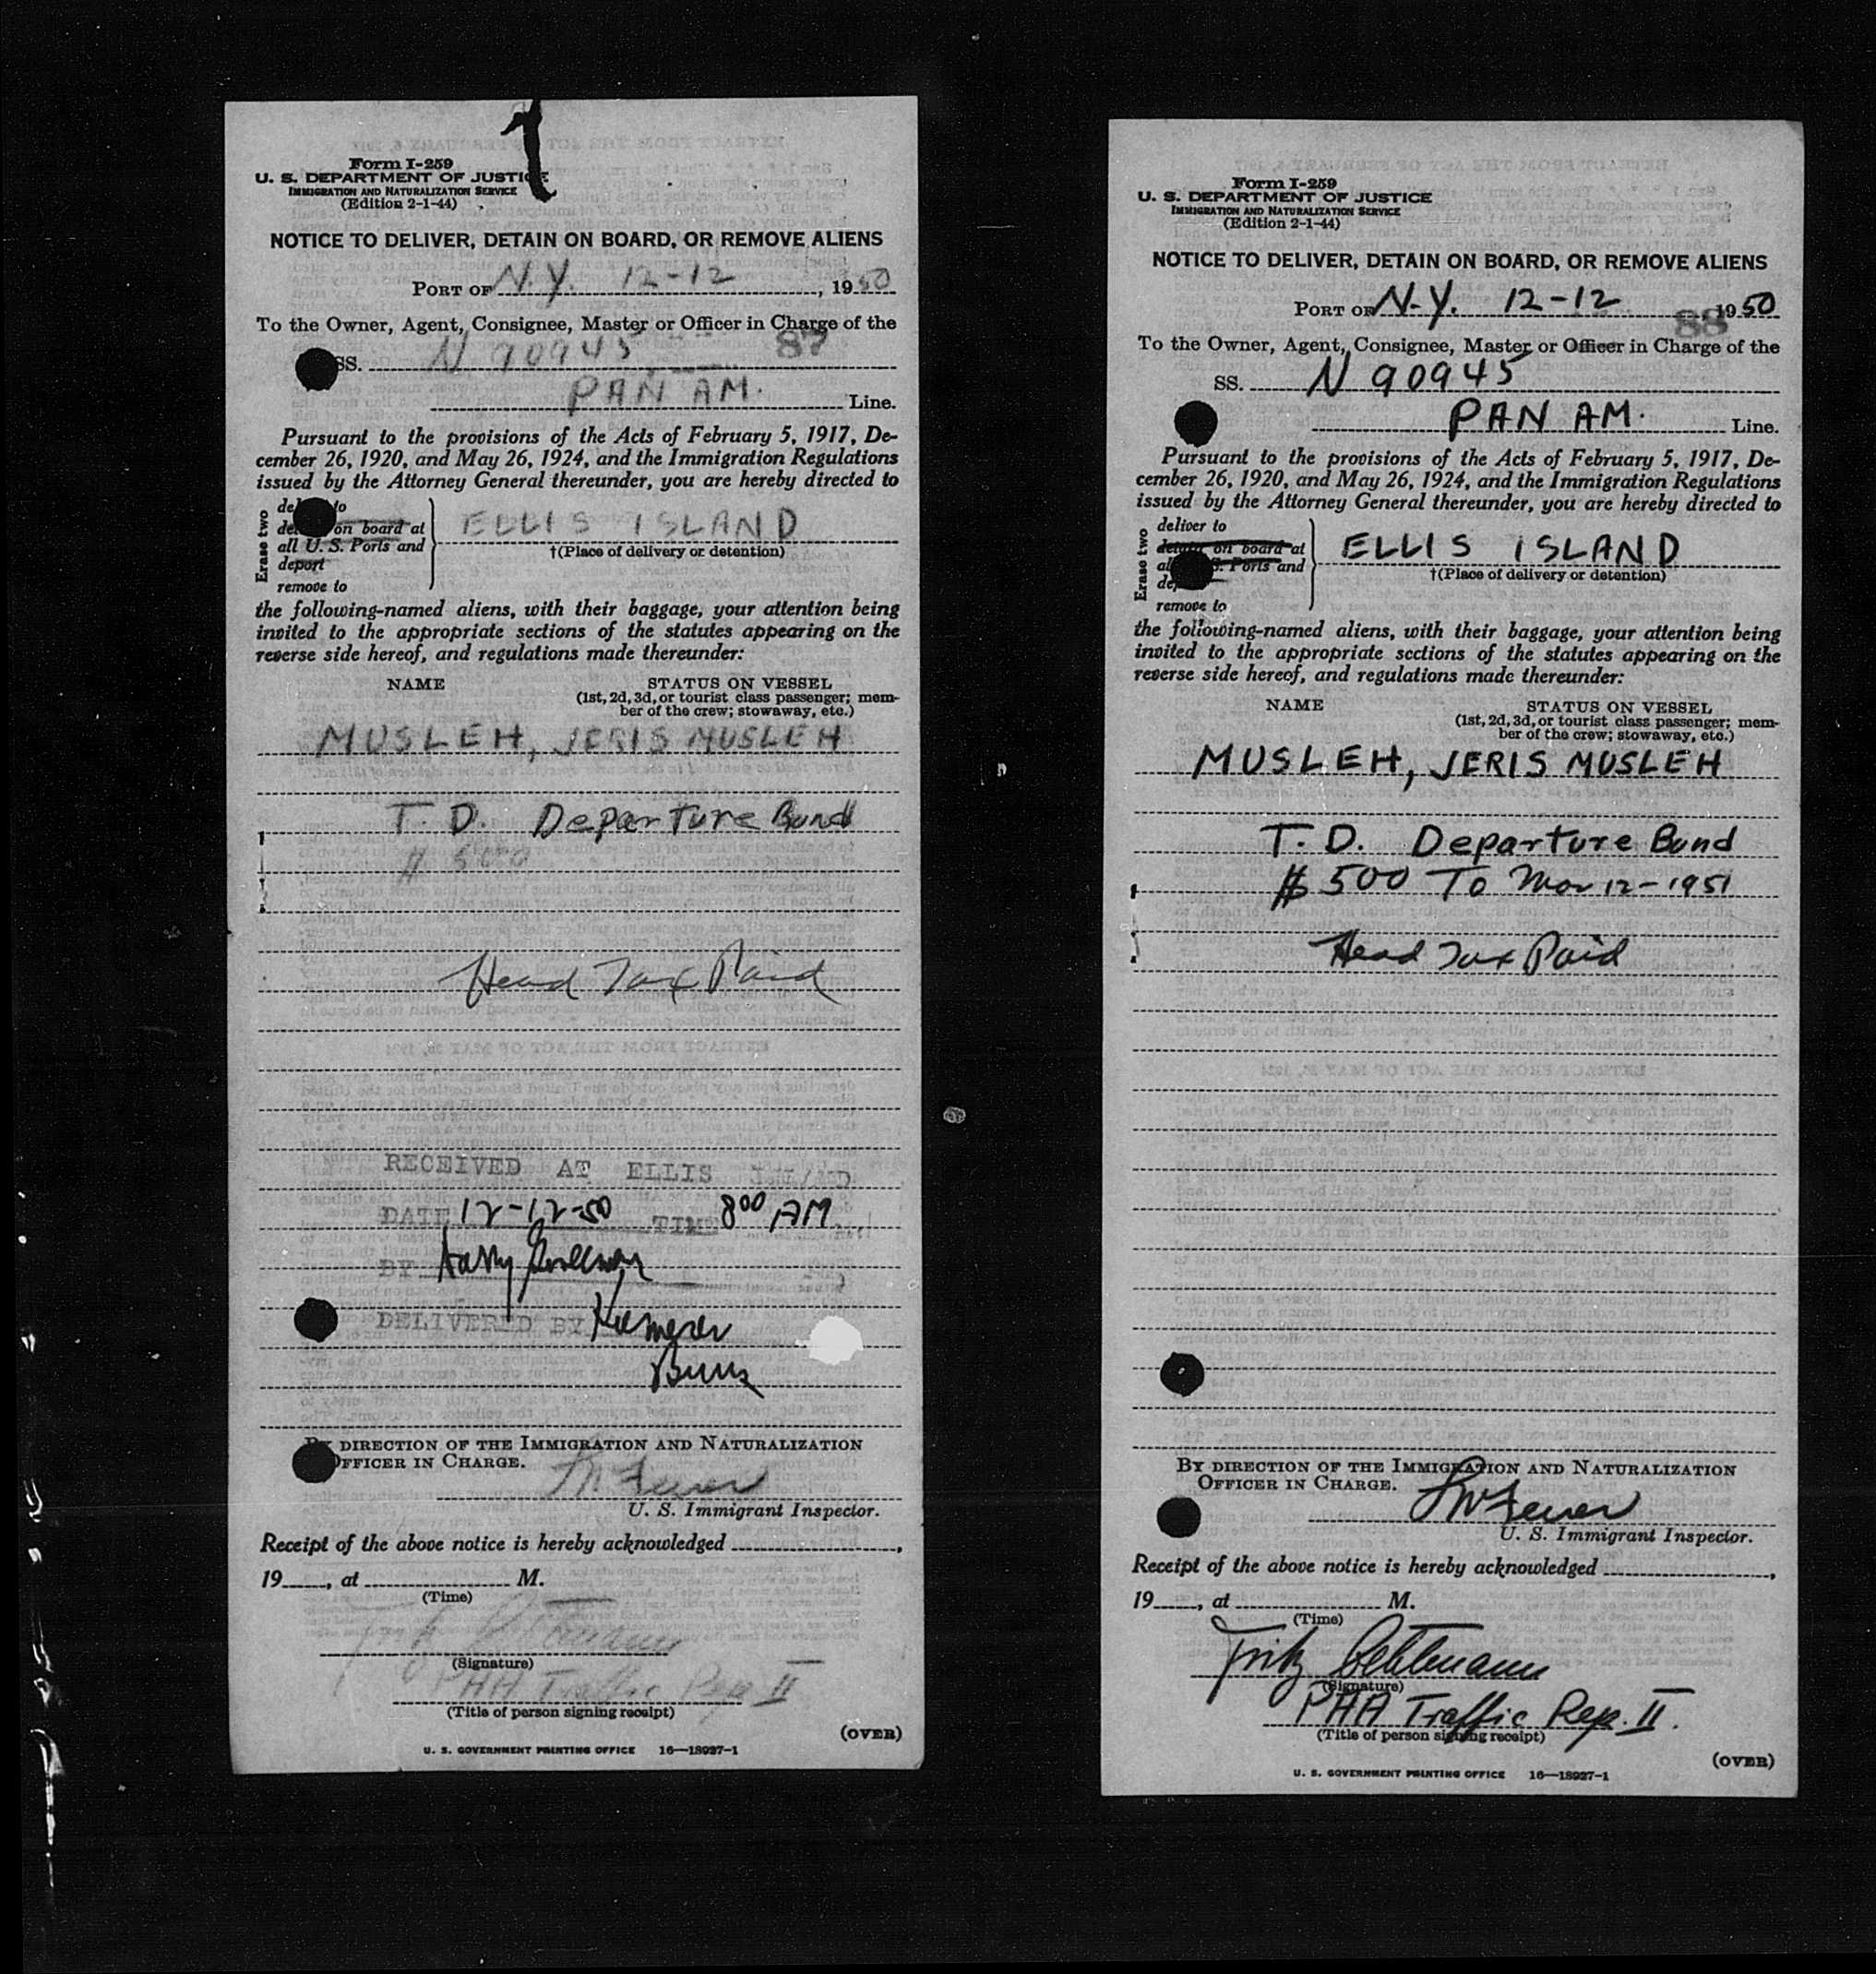 Form I-259
U. S. DEPARTMENT OF JUSTICE
IMMIGRATION AND NATURALIZATION SERVICE
(Edition 2-1-44)
NOTICE TO DELIVER, DETAIN ON BOARD, OR REMOVE ALIENS
PORT OF N.Y. 12-12, 1950
To the Owner, Agent, Consignee, Master or Officer in Charge of the
87
SS. N 90945
PAN AM. Line.
Pursuant to the provisions of the Acts of February 5, 1917, De-
cember 26, 1920, and May 26, 1924, and the Immigration Regulations
issued by the Attorney General thereunder, you are hereby directed to
Erase two
to
on board at
all U. S. Ports and
deport
remove to
ELLIS ISLAND
†(Place of delivery or detention)
the following-named aliens, with their baggage, your attention being
invited to the appropriate sections of the statutes appearing on the
reverse side hereof, and regulations made thereunder:
NAME STATUS ON VESSEL
(1st, 2d, 3d, or tourist class passenger; mem-
ber of the crew; stowaway, etc.)
MUSLEH, JERIS MUSLEH
T. D. Departure Bond
$ 500
Head Tax Paid
RECEIVED AT ELLIS ISLAND
DATE 12-12-50 TIME 8 00 AM
BY Harry
DELIVERED BY
BY DIRECTION OF THE IMMIGRATION AND NATURALIZATION
OFFICER IN CHARGE.
U. S. Immigrant Inspector.
Receipt of the above notice is hereby acknowledged
19 , at M.
(Time)
(Signature)
PAA Traffic Rep. II
(Title of person signing receipt)
(OVER)
U. S. GOVERNMENT PRINTING OFFICE 16—18927-1
Form I-259
U. S. DEPARTMENT OF JUSTICE
IMMIGRATION AND NATURALIZATION SERVICE
(Edition 2-1-44)
NOTICE TO DELIVER, DETAIN ON BOARD, OR REMOVE ALIENS
PORT OF N.Y. 12-12, 1950
88
To the Owner, Agent, Consignee, Master or Officer in Charge of the
SS. N 90945
PAN AM. Line.
Pursuant to the provisions of the Acts of February 5, 1917, De-
cember 26, 1920, and May 26, 1924, and the Immigration Regulations
issued by the Attorney General thereunder, you are hereby directed to
Erase two
deliver to
detain on board at
S. Ports and
remove to
ELLIS ISLAND
†(Place of delivery or detention)
the following-named aliens, with their baggage, your attention being
invited to the appropriate sections of the statutes appearing on the
reverse side hereof, and regulations made thereunder:
NAME STATUS ON VESSEL
(1st, 2d, 3d, or tourist class passenger; mem-
ber of the crew; stowaway, etc.)
MUSLEH, JERIS MUSLEH
T. D. Departure Bond
$ 500 To Mar 12-1951
Head Tax Paid
BY DIRECTION OF THE IMMIGRATION AND NATURALIZATION
OFFICER IN CHARGE.
U. S. Immigrant Inspector.
Receipt of the above notice is hereby acknowledged
19 , at M.
(Time)
Fritz
(Signature)
PAA Traffic Rep. II.
(Title of person signing receipt)
(OVER)
U. S. GOVERNMENT PRINTING OFFICE 16—18927-1